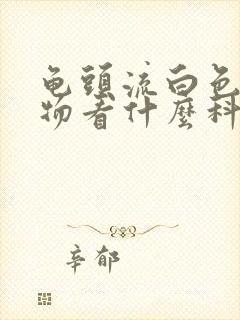 龟頭流白色
物看什麼科
辛郁